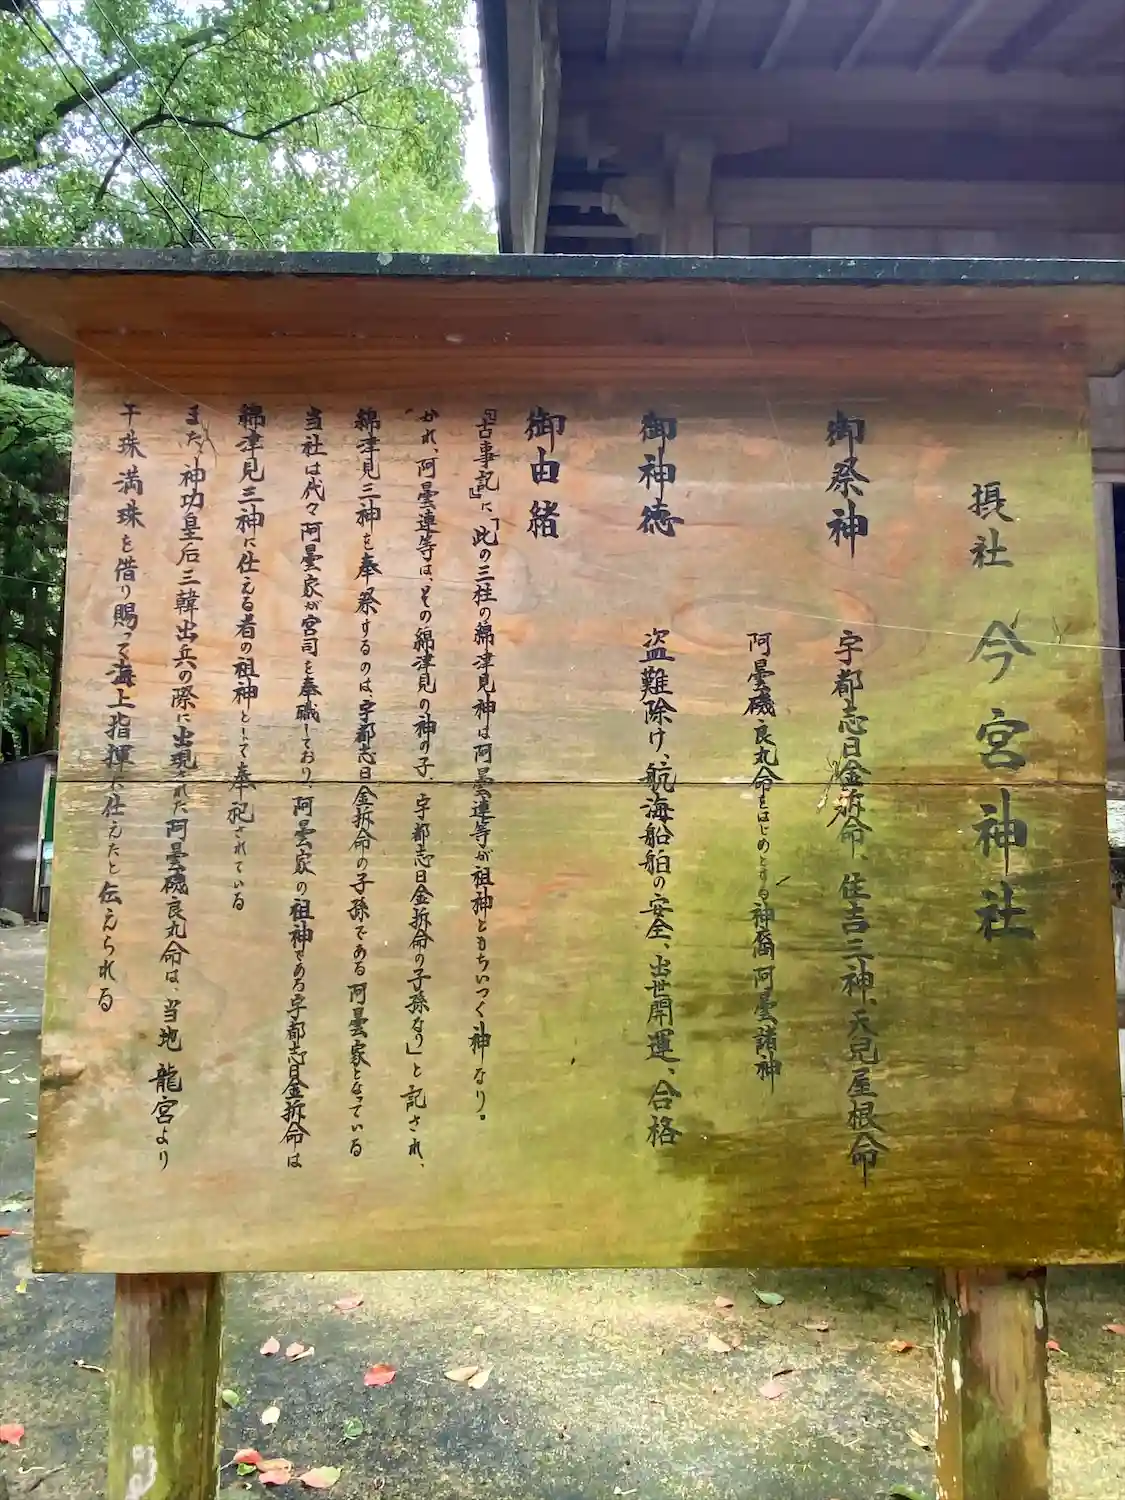 摂社 今宮神社
御祭神 宇都志日金拆命、住吉三神、天児屋根命
阿曇磯良丸命をはじめとする神裔阿曇諸神
御神徳 盗難除け、航海船舶の安全、出世開運、合格
御由緒
『古事記』に「此の三柱の綿津見神は阿曇連等が祖神ともちいつく神なり。
かれ、阿曇連等は、その綿津見の神の子、宇都志日金拆命の子孫なり」と記され、
綿津見三神を奉祭するのは、宇都志日金拆命の子孫である阿曇家となっている
当社は代々阿曇家が宮司を奉職しており、阿曇家の祖神である宇都志日金拆命は
綿津見三神に仕える者の祖神として奉祀されている
また、神功皇后三韓出兵の際に出現された阿曇磯良丸命は、当地 龍宮より
干珠満珠を借り賜って海上指揮に仕えたと伝えられる